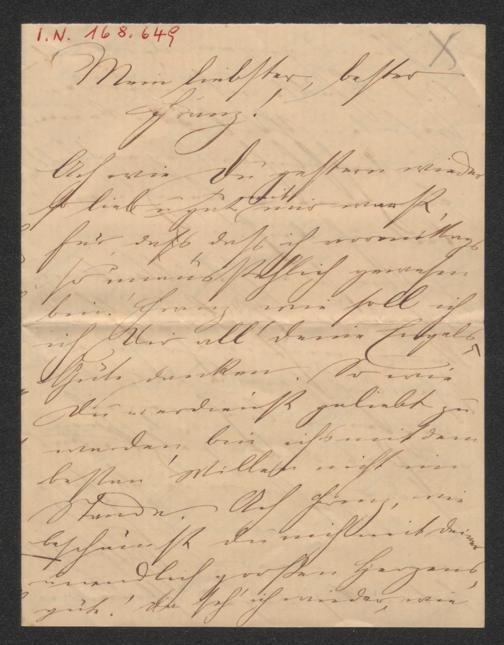 I.N. 168.649
Mein liebster, bester
Franz!
Ach wie Du gestern wieder
so lieb u. gut mit mir warst,
für daß daß ich vormittags
so gewesen
bin. Franz wie soll ich
ich Dir all' Deine Engels-
Güte danken. So wie
Du verdienst geliebt zu
werden bin ich mit dem
besten Willen nicht im
Stande. Ach Franz, wie
beschämst Du mich mit Deiner
unendlich großen Herzens
güte! Da seh' ich wieder, wie